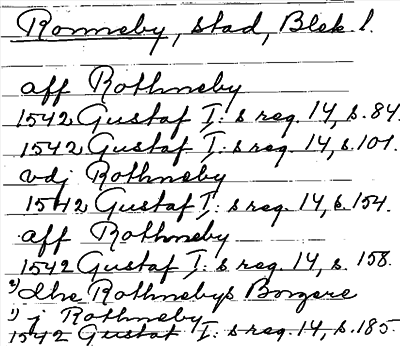 Ronneby, stad, Blek l.
aff Rothneby
1542 Gustaf I:s reg. 14, s. 84.
1542 Gustaf I:s reg. 14, s. 101.
vdj Rothneby
1542 Gustaf I:s reg. 14, s. 154.
aff Rothneby
1542 Gustaf I:s reg. 14, s. 158.
2) the Rothnebys Borgere
1) j Rothneby
1542 Gustaf I:s reg. 14, s. 185.